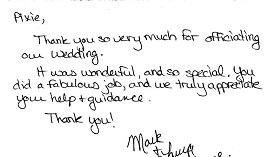 Pixie,
Thank you so very much for officiating
our wedding.
It was wonderful, and so special. You
did a fabulous job, and we truly appreciate
your help + guidance.
Thank you!
Mark